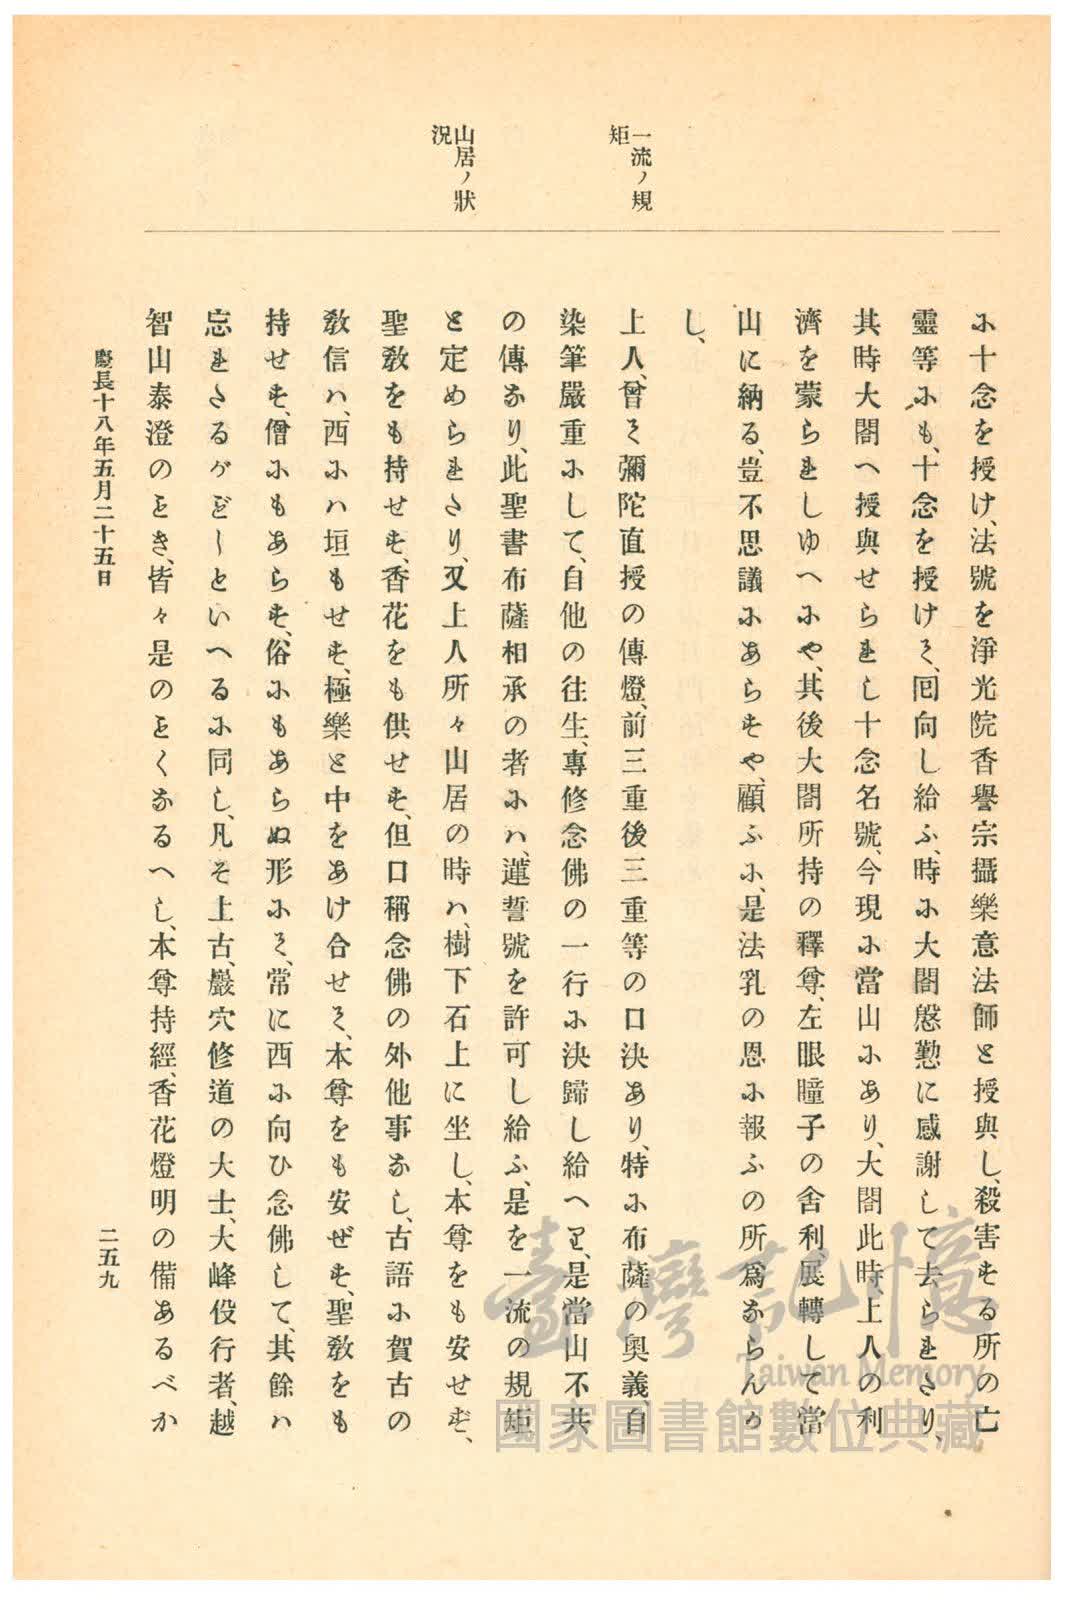 一流ノ規
矩
山居ノ狀
況
に十念を授け、法號を淨光院香譽宗攝樂意法師と授與し、殺害する所の亡
靈等にも、十念を授けて、囘向し給ふ、時に大閤慇懃に感謝して去られたり、
其時大閤へ授與せられし十念名號、今現に當山にあり、大閤此時、上人の利
濟を蒙られしゆへにや、其後大閤所持の釋尊、左眼瞳子の舍利、展轉して當
山に納る、豈不思議にあらすや、顧ふに、是法乳の恩に報ふの所爲ならんか
し、
上人、曾て彌陀直授の傳燈、前三重後三重等の口決あり、特に布薩の奧義、自
染筆嚴重にして、自他の往生、專修念佛の一行に決歸し給へり、是當山不共
の傳なり、此聖書布薩相承の者にハ、蓮誓號を許可し給ふ、是を一流の規矩
と定められたり、又上人所々山居の時ハ、樹下石上に坐し、本尊をも安せず、
聖敎をも持せす、香花をも供せす、但口稱念佛の外他事なし、古語に賀古の
敎信ハ、西にハ垣もせす、極樂と中をあけ合せて、本尊をも安ぜす、聖敎をも
持せす、僧にもあらす、俗にもあらぬ形にて、常に西に向ひ念佛して、其餘ハ
忘れたるがごとしといへるに同し、凡そ上古、巖穴修道の大士、大峰役行者、越
智山泰澄のとき、皆々是のとくなるへし、本尊持經、香花燈明の備あるべか
慶長十八年五月二十五日
二五九
臺灣記憶
Taiwan Memory
國家圖書館數位典藏